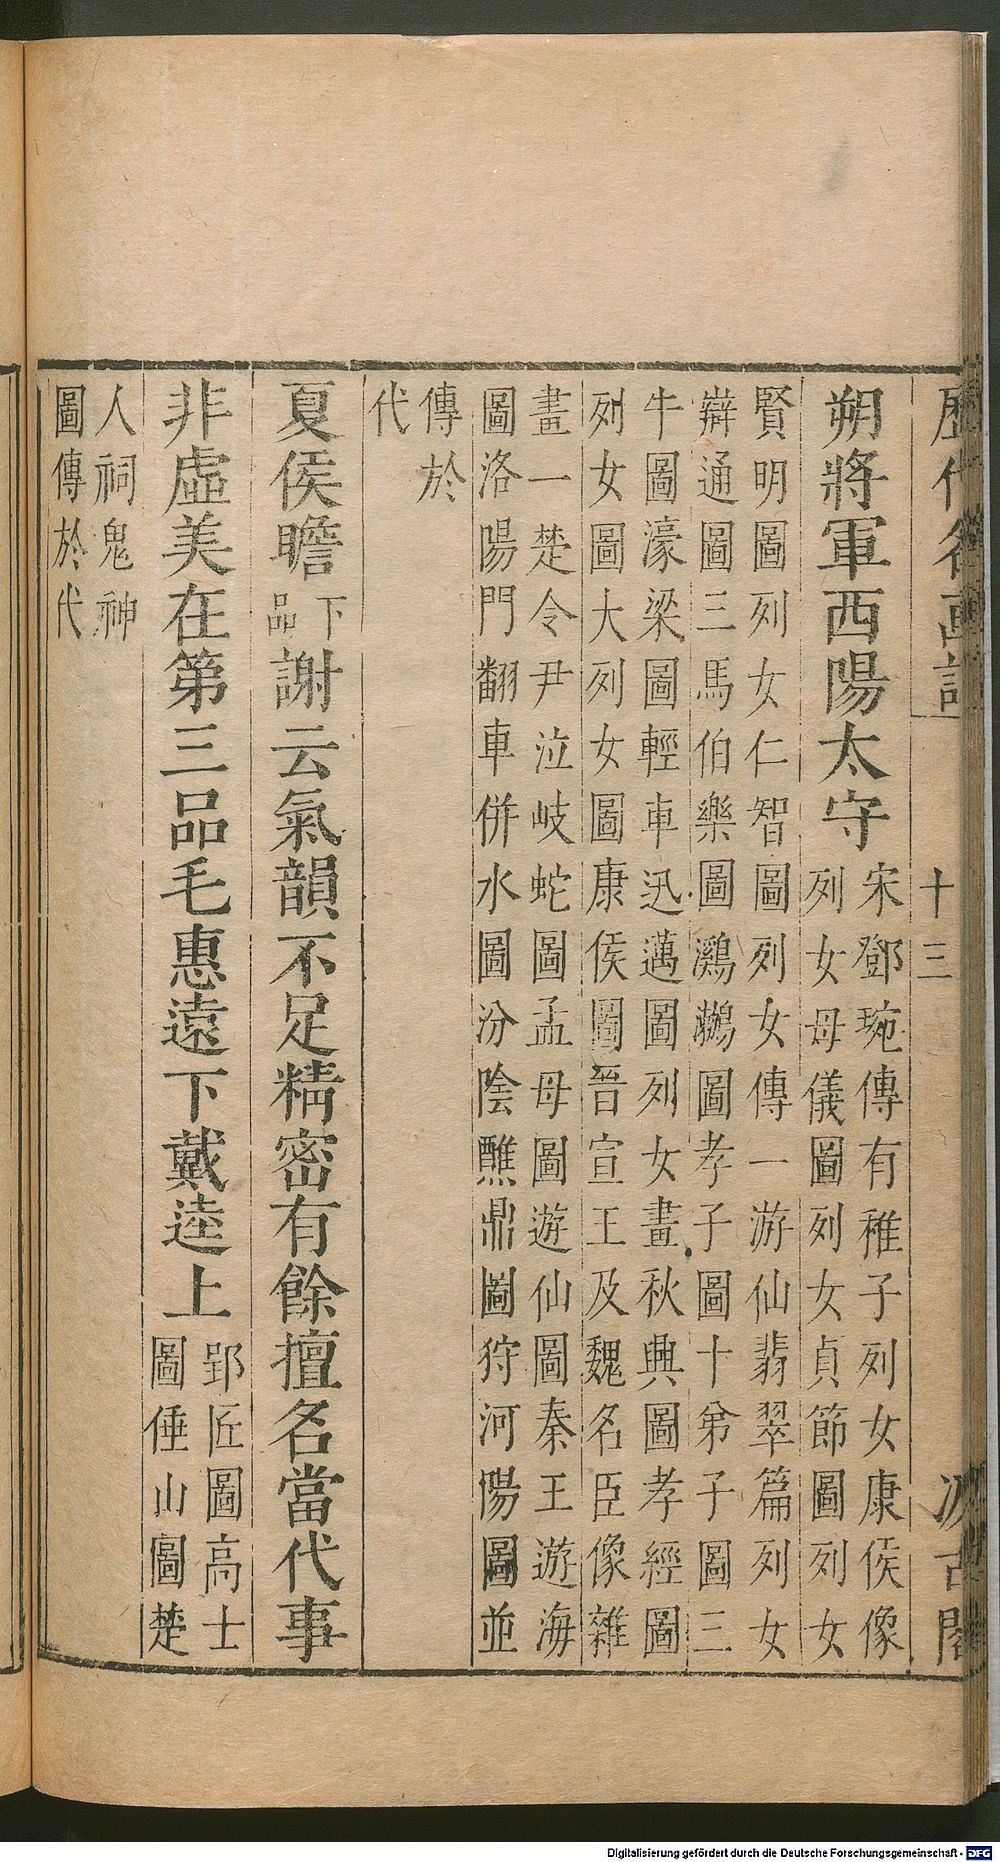 歷代名畫記
十三
汲古閣
朔將軍西陽太守
宋鄧琬傳有稚子列女康侯像
列女母儀圖列女貞節圖列女
賢明圖列女仁智圖列女傳一游仙翡翠篇列女
辯通圖三馬伯樂圖鸂鶒圖孝子圖十弟子圖三
牛圖濠梁圖輕車迅邁圖列女畫秋興圖孝經圖
列女圖大列女圖康侯圖晉宣王及魏名臣像雜
畫一楚令尹泣岐蛇圖孟母圖遊仙圖秦王遊海
圖洛陽門翻車併水圖汾陰醮鼎圖狩河陽圖並
傳於
代
夏侯瞻下品謝云氣韻不足精密有餘擅名當代事
非虛美在第三品毛惠遠下戴逵上
郢匠圖高士
圖倕山圖楚
人祠鬼神
圖傳於代
Digitalisierung gefördert durch die Deutsche Forschungsgemeinschaft - DFG